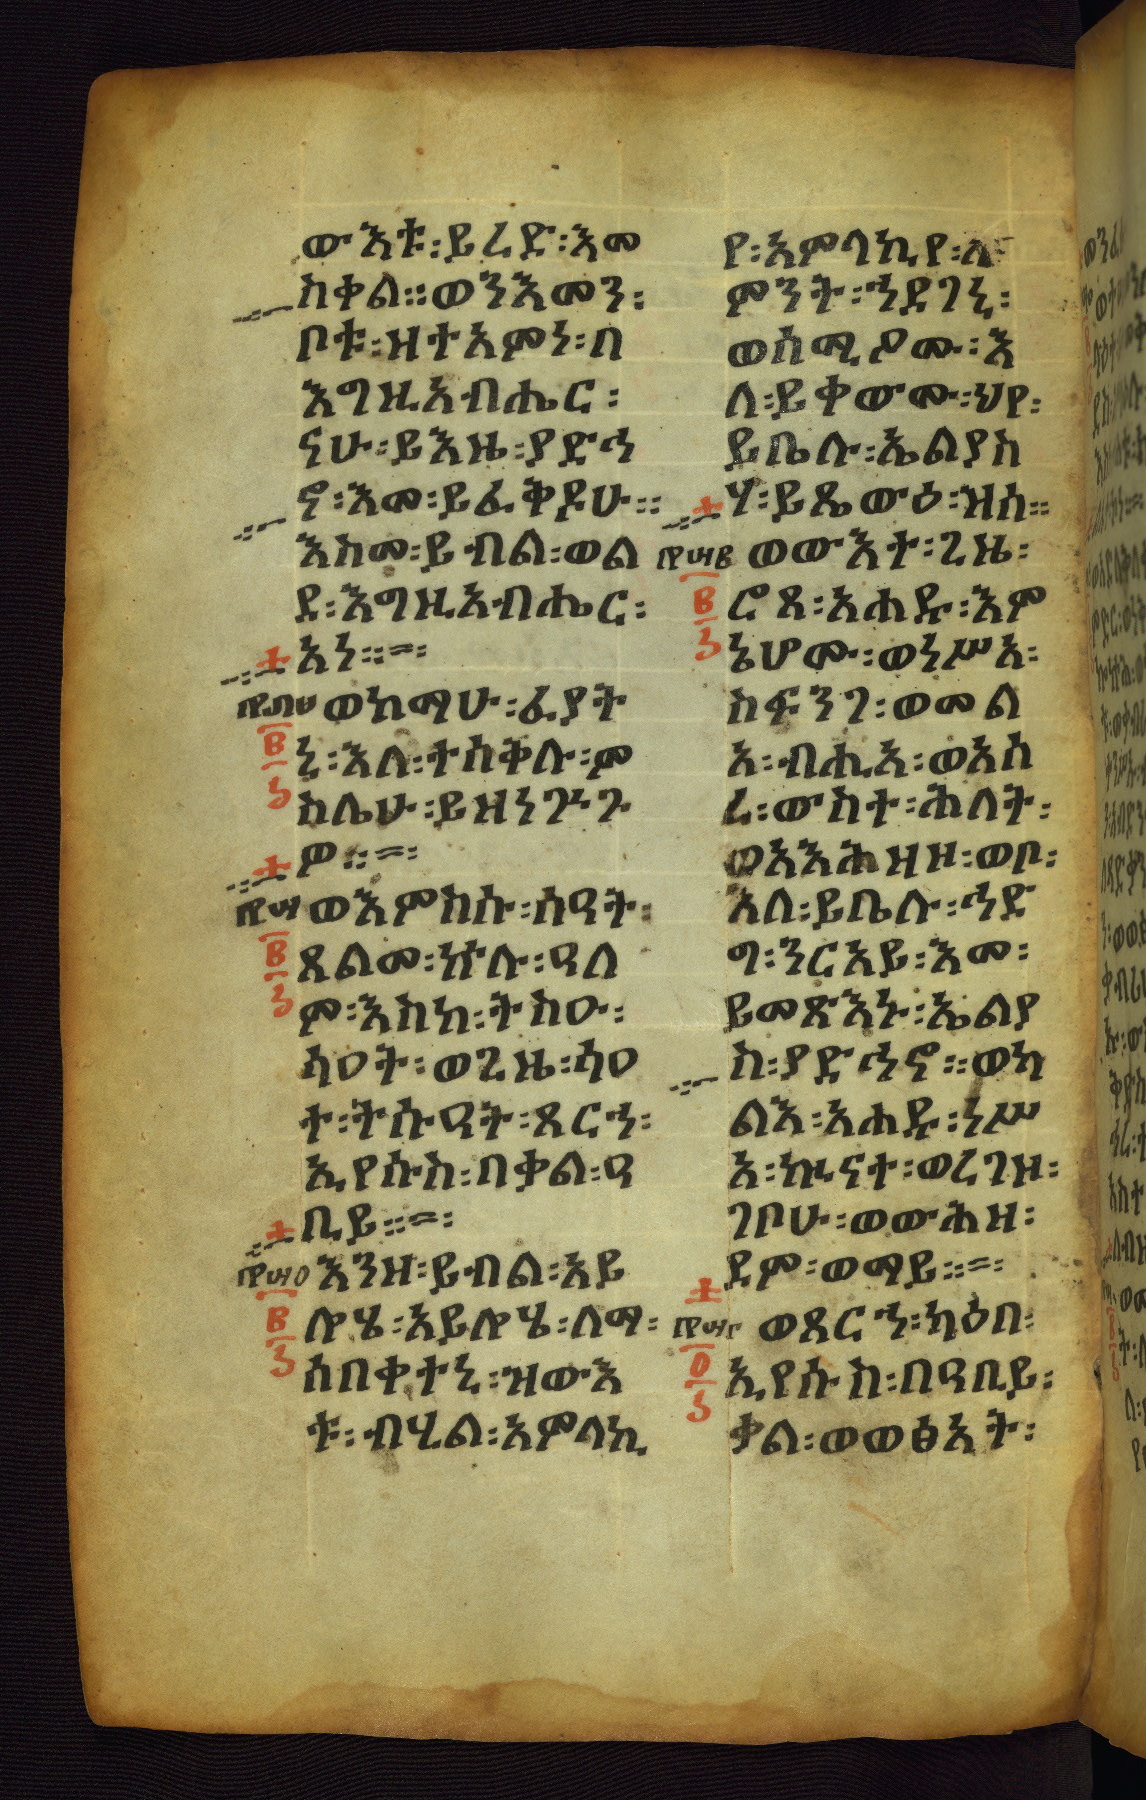 ውእቱ፡ይረድ፡እመ
ስቀል።ወንእመን፡
ቦቱ፡ዝተአምነ፡በ
እግዚአብሔር፡
ናሁ፡ይእዜ፡ያድኅ
ኖ፡እመ፡ይፈቅዶሁ።
እስመ፡ይብል፡ወል
ደ፡እግዚአብሔር፡
አነ።=፡
ወከማሁ፡ፈያት
ኒ፡እለ፡ተሰቅሉ፡ም
ስሌሁ፡ይዘነጕጕ
ዎ።=፡
ወእምከሱ፡ሰዓት፡
ጸልመ፡ኵሉ፡ዓለ
ም፡እስከ፡ትስዑ፡
ሳዐት፡ወጊዜ፡ሳዐ
ተ፡ትሱዓት፡ጸርኀ፡
ኢየሱስ፡በቃል፡ዓ
ቢይ።=፡
እንዘ፡ይብል፡አይ
ሎሄ፡አይሎሄ፡ለማ፡
ሰበቀተኒ፡ዝውእ
ቱ፡ብሂል፡አምላኪ
የ፡አምላኪየ፡ለ
ምንት፡ኀደገኒ፡
ወሰሚዖሙ፡እ
ለ፡ይቀውሙ፡ህየ፡
ይቤሉ፡ኤልያስ
ሃ፡ይጼውዕ፡ዝሰ።
ወውእተ፡ጊዜ፡
ሮጸ፡አሐዱ፡እም
ኔሆሙ፡ወነሥአ፡
ስፍንገ፡ወመል
አ፡ብሒአ፡ወአሰ
ረ፡ውስተ፡ሕለት፡
ወአእሕዘዘ፡ወቦ፡
እለ፡ይቤሉ፡ኀድ
ግ፡ንርአይ፡እመ፡
ይመጽእኑ፡ኤልያ
ስ፡ያድኅኖ።ወካ
ልእ፡አሐዱ፡ነሥ
አ፡ኵናተ፡ወረገዘ፡
ገቦሁ፡ወውሕዘ፡
ደም፡ወማይ።=፡
ወጸርኀ፡ካዕበ፡
ኢየሱስ፡በዓቢይ፡
ቃል፡ወወፅአት፡